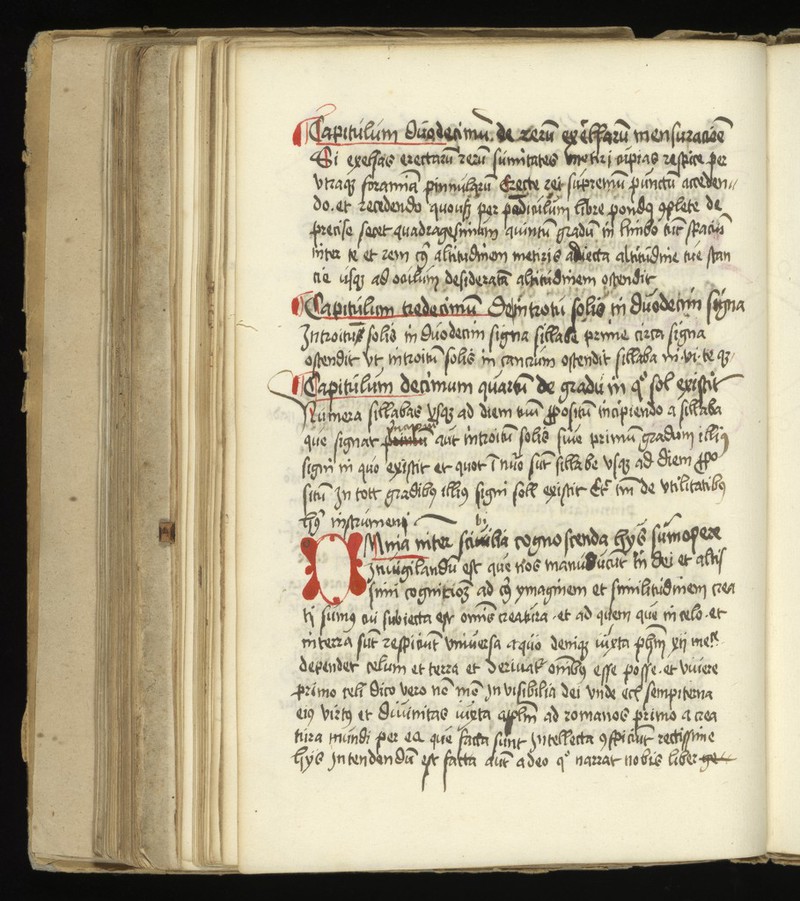 Capitulum duodecimu. de rerū excelsarū mensuracōe
Si excelsas erectarū rerū sumitates metiri cupias respice per
vtraqꝫ foramīa pinnularū Erecte rei supremū punctū acceden
do. et recedendo quousqꝫ per pēdiculum libre pondꝰ ꝯplete de
precise secet quadragesimum quintū gradū in limbo tūc spaciū
inter te et rem cuiꝰ altitudinem metiris adiecta altitudīe tue stan
cie vsqꝫ ad oculum desideratā altitudinem ostendit
Capitulum tredecimū De introitu solis in duodecim signa
Introitus solis in duodecim signa sillabe prime circa signa
ostendit vt introitū solis in cancrum ostendit sillaba in vi te qꝫ
Capitulum decimum quartū de gradu in qᵒ sol existit
Numera sillabas vsqꝫ ad diem tuū ꝓpositū incipiendo a sillaba
que signat aut introitū solis siue primū gradum illiꝰ
signi in quo existit et quot ī nūo sūt sillabe vsqꝫ ad diem ꝓpo
situm In tot gradibꝰ illiꝰ signi soll existit Et tm̄ de vtilitatibꝰ
hꝰ instrumenti
Omnia inter scibilia cognoscenda hijs sūmopere
Inuigilandū est que nos manuducūt in dei et altis
simi cognitioēꝫ ad cuiꝰ ymaginem et similitudinem crea
ti sumꝰ cui subiecta est omīs creatura. et ad quem que in celo. et
in terra sūt respiciūt vniuersa a quo deniqꝫ iuxta phm̄ xij meᵗᵉ
dependet celum et terra et deriuatᵉ omibꝰ esse posse. et viuere
primo celi dico vero nō mō Inuisibilia dei vnde eciā sempiterna
eiꝰ virtꝰ et diuinitas iuxta aplm̄ ad romanos primo a crea
tura mundi per ea que facta sunt Intellecta ꝯspiciūt rectissime
hijs Intendendū est facta aūt adeo qᵉ narrat nobis liber ge